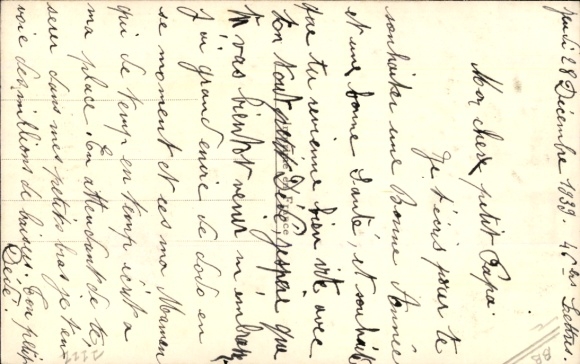 Jeudi 28 Decembre 1939 46ème Lettres
Mon cher petit Papa
Je t'écris pour te
souhaiter une Bonne Année
et une bonne Santé, et souhait
que tu revienne bien vite avec
ton tout petit Dédé, j'espère que
tu vas bientôt venir m'embrasser
J'ai grand envie de dodo en
se moment et ces ma Maman
qui de temp en temp écrit a
ma place. En attendant de te
serrer dans mes petits bras je t'en
voie des millions de baisers. Ton petit
Dédé.